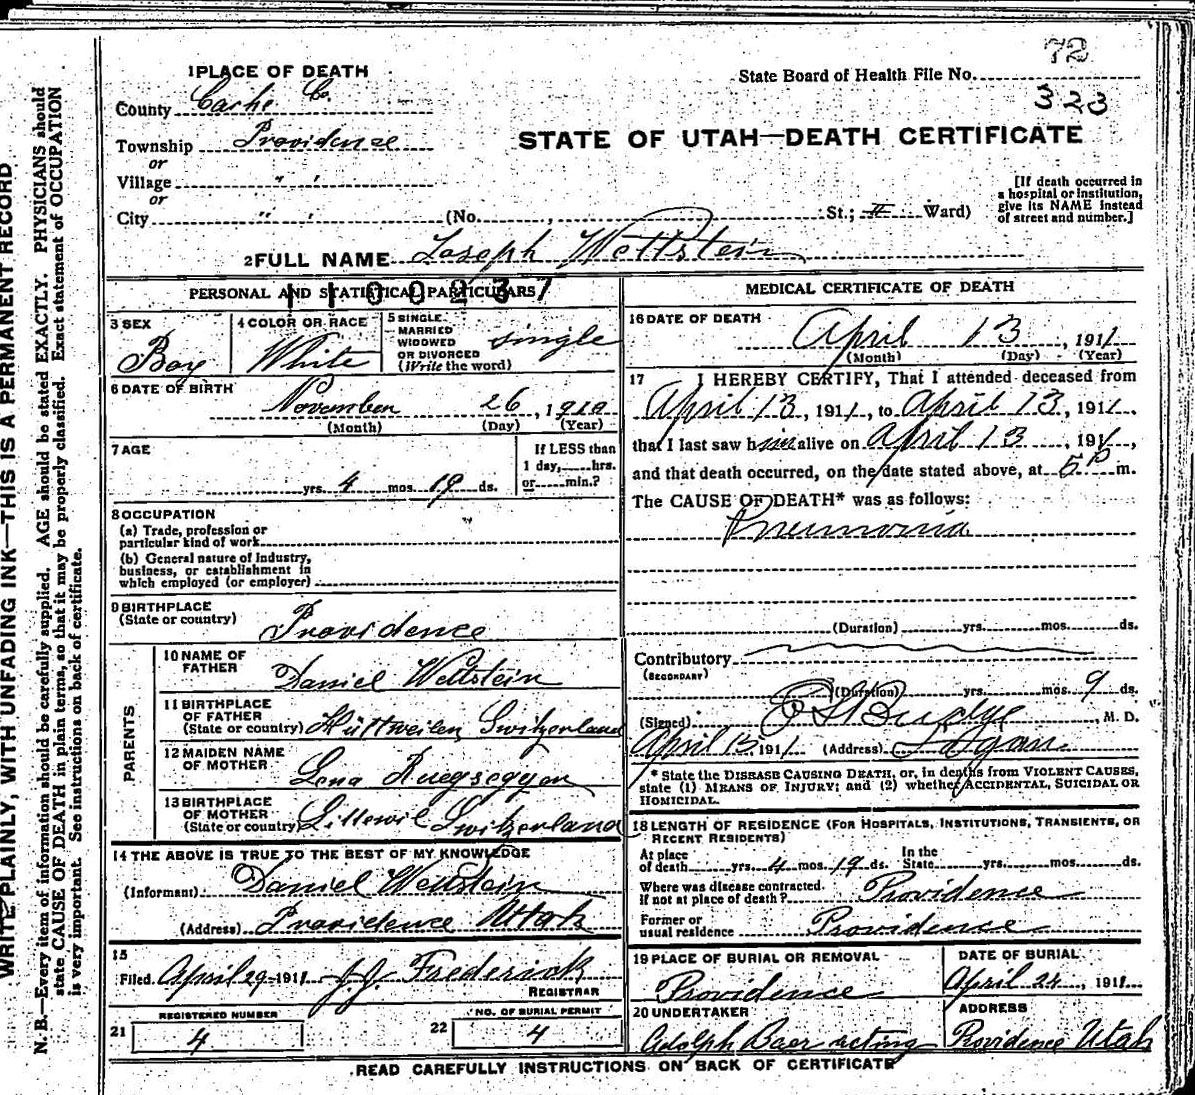 72
1 PLACE OF DEATH
State Board of Health File No.
323
County Cache Co.
STATE OF UTAH—DEATH CERTIFICATE
Township Providence
or
Village " "
or
City " " (No. , St.; II Ward)
[If death occurred in
a hospital or institution,
give its NAME instead
of street and number.]
2 FULL NAME Joseph Wettstein
PERSONAL AND STATISTICAL PARTICULARS
1100237
3 SEX
Boy
4 COLOR OR RACE
White
5 SINGLE
MARRIED
WIDOWED
OR DIVORCED
(Write the word)
single
6 DATE OF BIRTH
November 26, 1910
(Month) (Day) (Year)
7 AGE
yrs. 4 mos. 19 ds.
If LESS than
1 day, hrs.
or min.?
8 OCCUPATION
(a) Trade, profession or
particular kind of work
(b) General nature of industry,
business, or establishment in
which employed (or employer)
9 BIRTHPLACE
(State or country)
Providence
PARENTS
10 NAME OF
FATHER
Daniel Wettstein
11 BIRTHPLACE
OF FATHER
(State or country) Hüttweilen Switzerland
12 MAIDEN NAME
OF MOTHER
Lena Ruegsegger
13 BIRTHPLACE
OF MOTHER
(State or country) Littewil Switzerland
14 THE ABOVE IS TRUE TO THE BEST OF MY KNOWLEDGE
(Informant) Daniel Wettstein
(Address) Providence Utah
15
Filed April 29 1911 J J Frederick
REGISTRAR
REGISTERED NUMBER
21 4
NO. OF BURIAL PERMIT
22 4
MEDICAL CERTIFICATE OF DEATH
16 DATE OF DEATH
April 13, 1911
(Month) (Day) (Year)
17 I HEREBY CERTIFY, That I attended deceased from
April 13, 1911, to April 13, 1911,
that I last saw him alive on April 13, 1911,
and that death occurred, on the date stated above, at 5 P m.
The CAUSE OF DEATH* was as follows:
Pneumonia
(Duration) yrs. mos. ds.
Contributory
(SECONDARY)
(Duration) yrs. mos. 9 ds.
(Signed) Budge M. D.
April 13 1911 (Address) Logan
* State the DISEASE CAUSING DEATH, or, in deaths from VIOLENT CAUSES,
state (1) MEANS OF INJURY; and (2) whether ACCIDENTAL, SUICIDAL OR
HOMICIDAL.
18 LENGTH OF RESIDENCE (FOR HOSPITALS, INSTITUTIONS, TRANSIENTS, OR
RECENT RESIDENTS)
At place
of death yrs. 4 mos. 19 ds.
In the
State yrs. mos. ds.
Where was disease contracted,
if not at place of death? Providence
Former or
usual residence Providence
19 PLACE OF BURIAL OR REMOVAL
Providence
DATE OF BURIAL
April 24, 1911
20 UNDERTAKER
Adolph Baer acting
ADDRESS
Providence Utah
READ CAREFULLY INSTRUCTIONS ON BACK OF CERTIFICATE
WRITE PLAINLY, WITH UNFADING INK—THIS IS A PERMANENT RECORD
N. B.—Every item of information should be carefully supplied. AGE should be stated EXACTLY. PHYSICIANS should
state CAUSE OF DEATH in plain terms, so that it may be properly classified. Exact statement of OCCUPATION
is very important. See instructions on back of certificate.